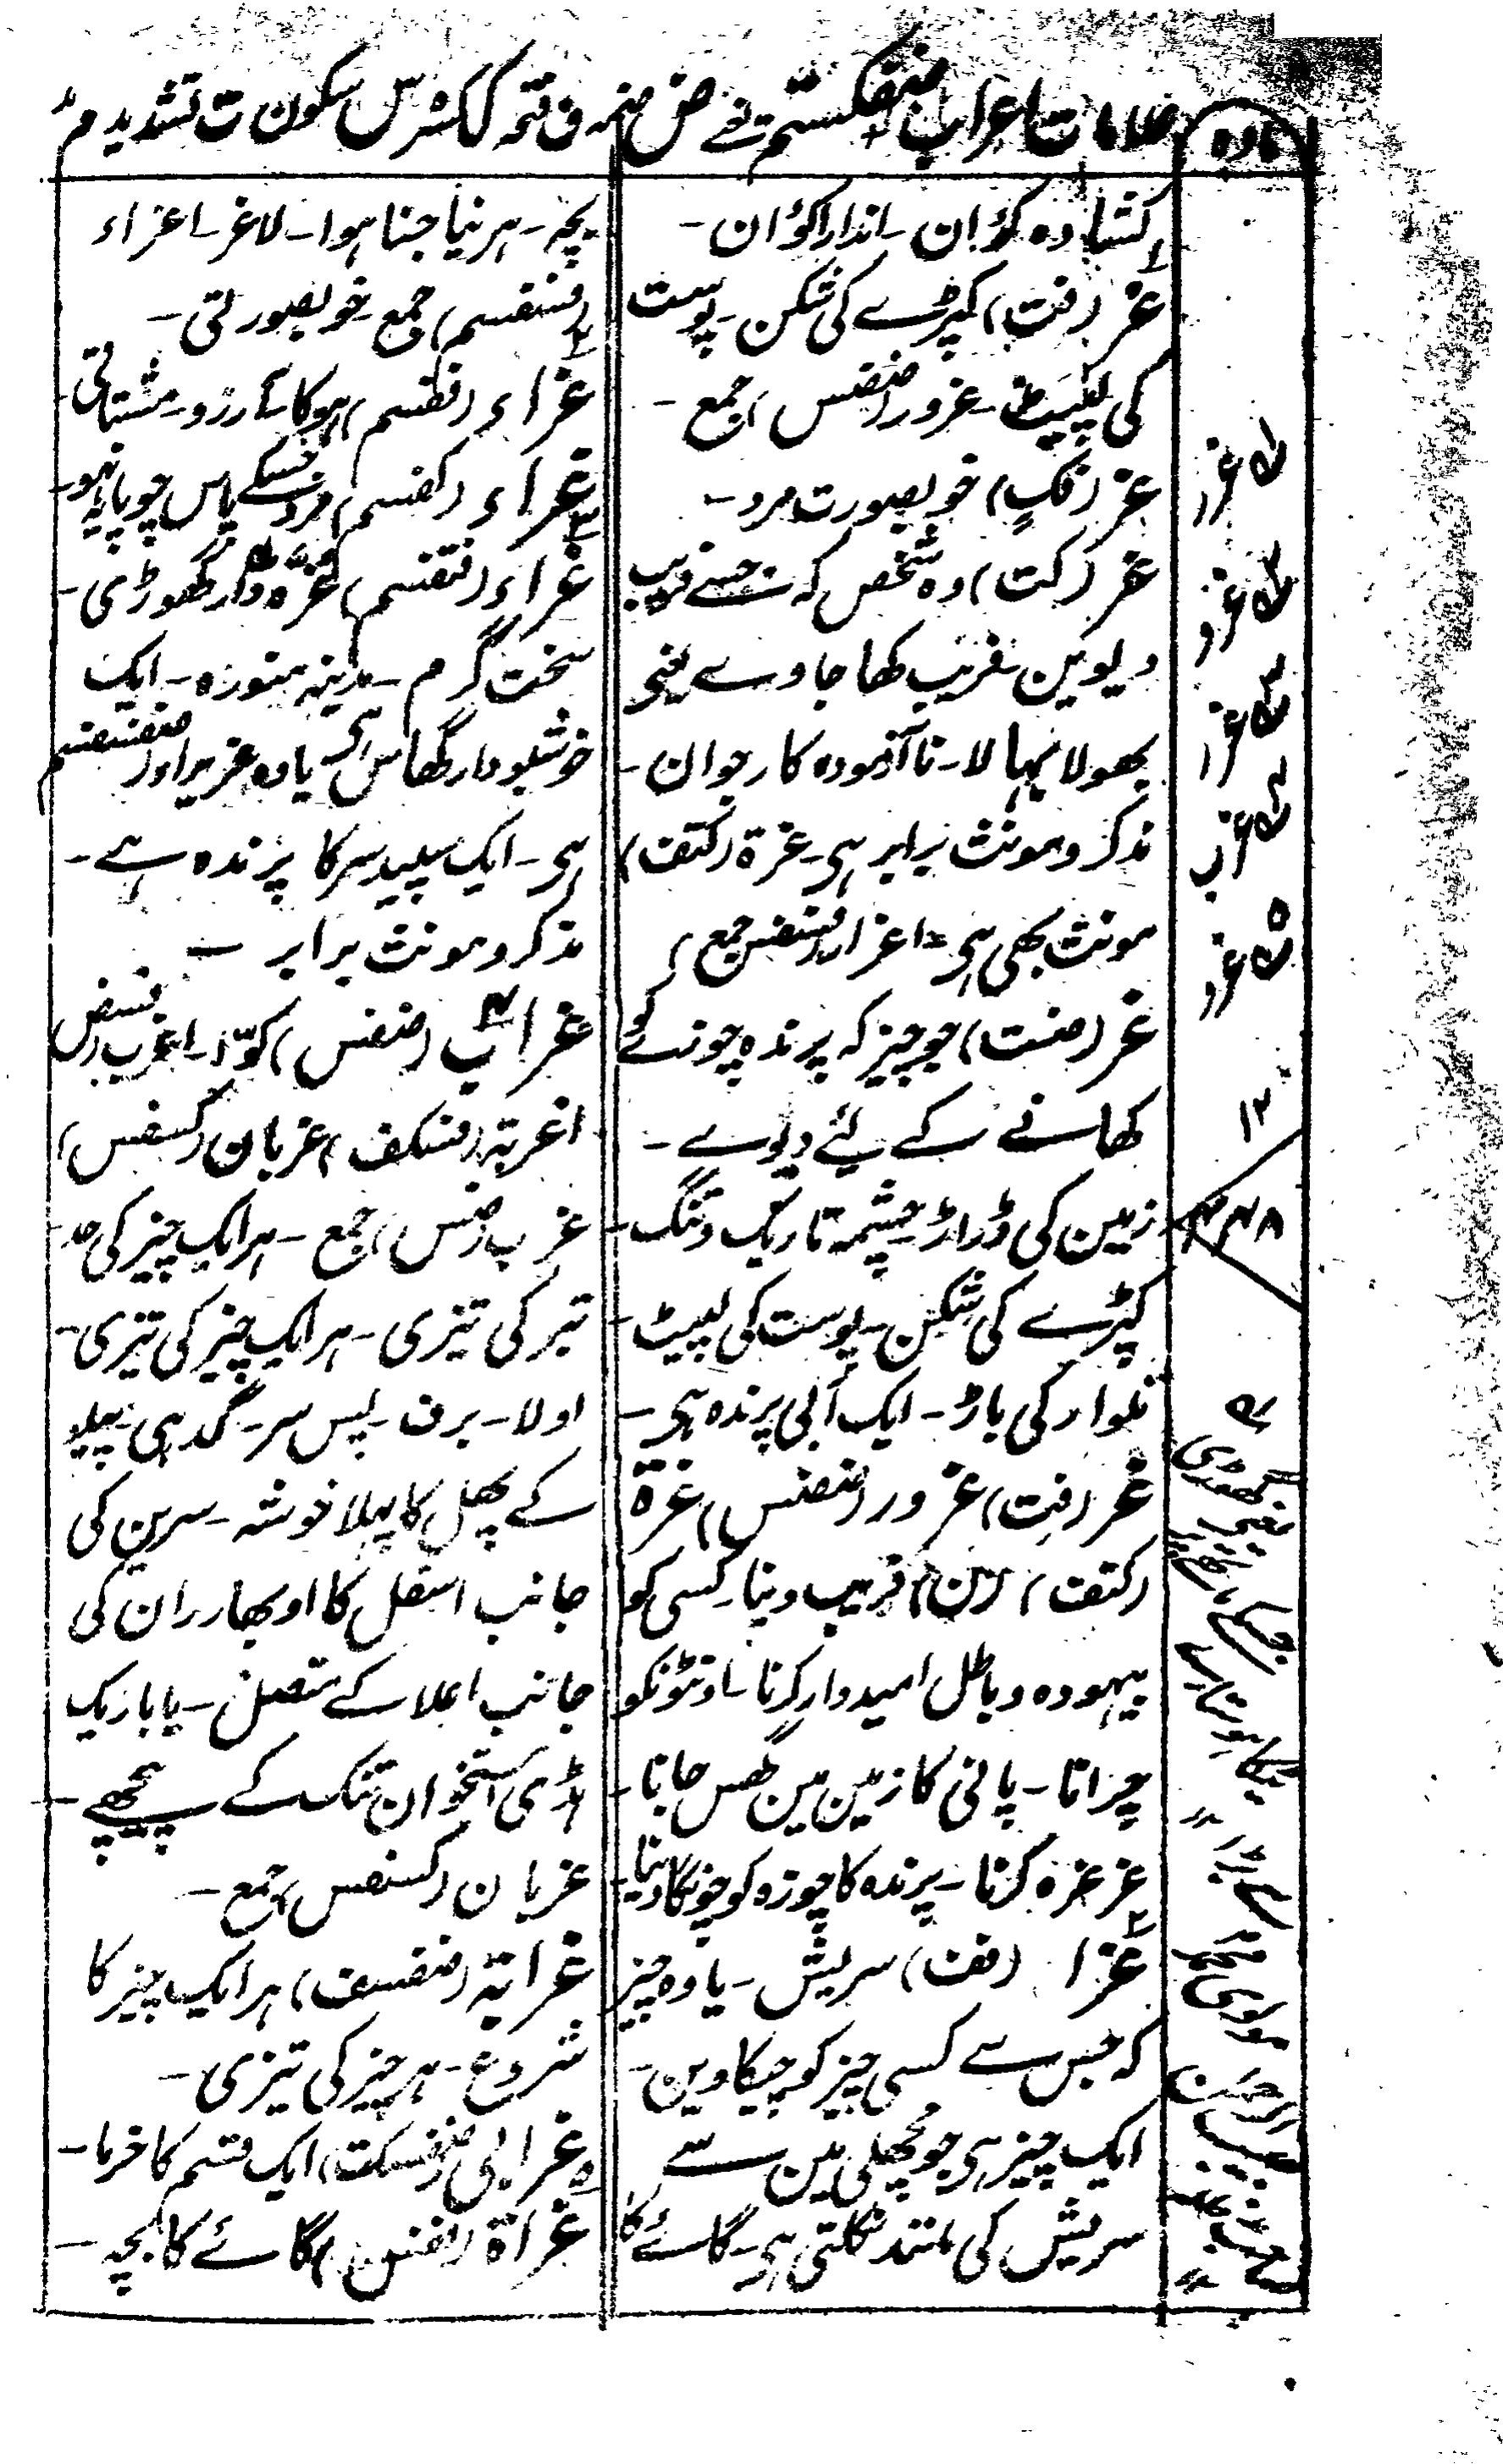 مادہ
علامات اعراب ضفکستم یعنے ض ضمہ ف فتحہ ک کسرہ س سکون ت تشدید م مد
کشادہ کؤان - اندارا کؤان -
غر (فت) کپڑے کی شکن - پوست
کی لپیٹ - غرور (ضفس) جمع -
غر (فک) خوبصورت مرد -
غر (کت) وہ شخص کہ جسے فریب
دیوین فریب کھا جاوے یعنی
بھولا بھالا - ناآزمودہ کار جوان -
مذکر و مونث برابر ہی - غرۃ (کتف)
مونث بھی ہی = اغرار (فسفس) جمع
غر (ضت) جو چیز کہ پرندہ چوزے کو
کھانے کے لئے دیوے -
زمین کی دڑاڑ - چشمہ تاریک و تنگ -
کپڑے کی شکن - پوست کی لپیٹ -
تلوار کی باڑ - ایک آبی پرندہ ہی -
غر (فت) غرور (ضفس) غرۃ
(کتف) (ن) فریب دینا - کسی کو
بیہودہ و باطل امیدوار کرنا - اونٹونکو
چرانا - پانی کا زمین مین گھس جانا -
غرغرہ کرنا - پرندہ کا چوزہ کو چونگا دینا -
غرا (فف) سریش - یا وہ چیز
کہ جس سے کسی چیز کو چپکاوین -
ایک چیز ہی جو مچھلی مین سے
سریش کی مانند نکلتی ہی - گائے کا
بچہ - ہر نیا جنا ہوا - لاغر - اغراء
(فسفسم) جمع - خوبصورتی -
غراء (ففسم) ہوکا - آرزو - مشتاقی -
غراء (کفسم) مرد جسکے پاس چوپایہ نہو -
غراء (فتفسم) غرہ دار گھوڑی -
سخت گرم - مدینہ منورہ - ایک
خوشبودار گھاس ہی یا وہ غریراء
ہی - ایک سپید سر کا پرندہ ہے -
مذکر و مونث برابر -
غراب (ضفس) کوّا - اغرب (فسضس)
اغربۃ (فسکف) غربان (کسفس)
غرب (ضس) جمع - ہر ایک چیز کی حد -
تبر کی تیزی - ہر ایک چیز کی تیزی -
اولا - برف - پس سر - گدہی - پیلو
کے پھل کا پہلا خوشہ - سرین کی
جانب اسفل کا اوبھار ران کی
جانب اعلا کے متصل - یا باریک
ہڈی استخوان تنک کے پیچھے -
غربان (کسفس) جمع -
غرابۃ (ضفسف) ہر ایک چیز کا
شروع - ہر چیز کی تیزی -
غرابی (ضفسکت) ایک قسم کا خرما -
غراۃ (ففس) گائے کا بچہ -
غرر
غرو
غرا
غرب
غرو
۱۳